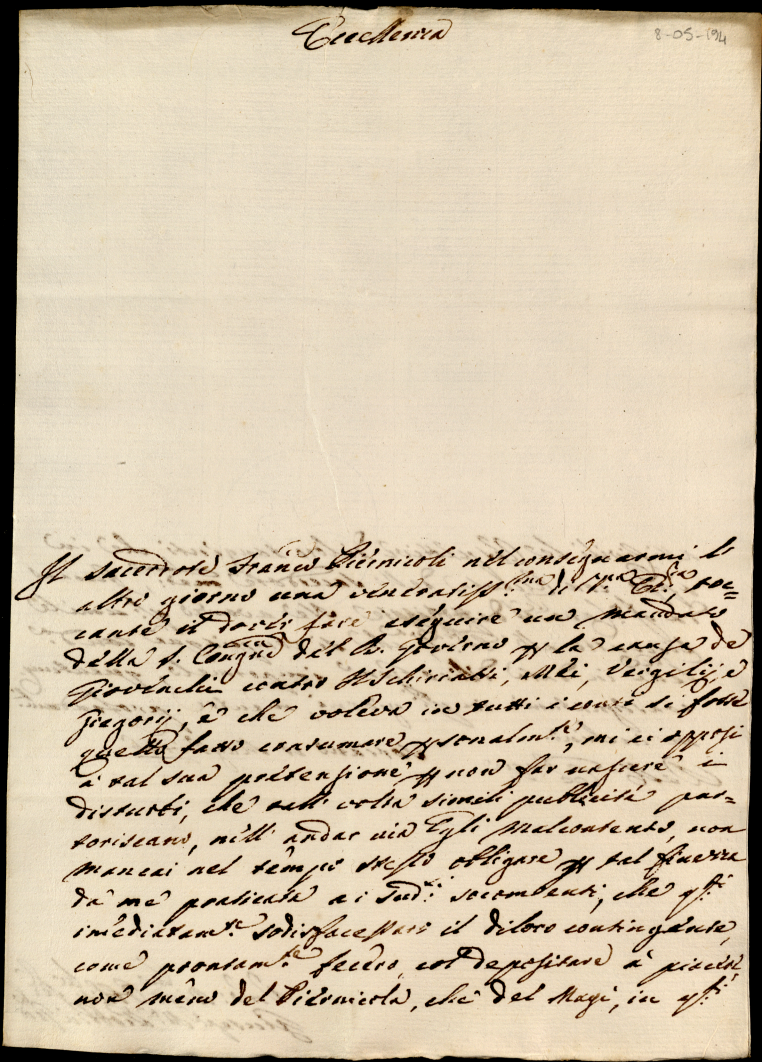 Eccellenza
8-05-194
Il sacerdote Franco Piernicoli nel consegnarmi l'
altro giorno una veneratiss.ma di V.ra Ecc.za, toc=
cante il dover fare eseguire un mandato
della S. Congne del B. Governo p la causa de
Giovenchi contro Schiratti, Mei, Vergilij, e
Gregorij, e che voleva in tutti i conti si fosse
questo fatto consumare psonalmte, mi ci opposi
à tal sua pretenzione, p non far nascere i
disturbi, che tall' volta simili publicità par=
toriscano, nell' andar via Egli malcontento, non
mancai nel tempo stesso obligare p tal finezza
da me praticata a i sudi socombenti, che qti
imediatamte sodisfacessaro il diloro contingente,
come prontamte fecero, col depositare à piacere
non meno del Piernicola, che del Magi, in qti